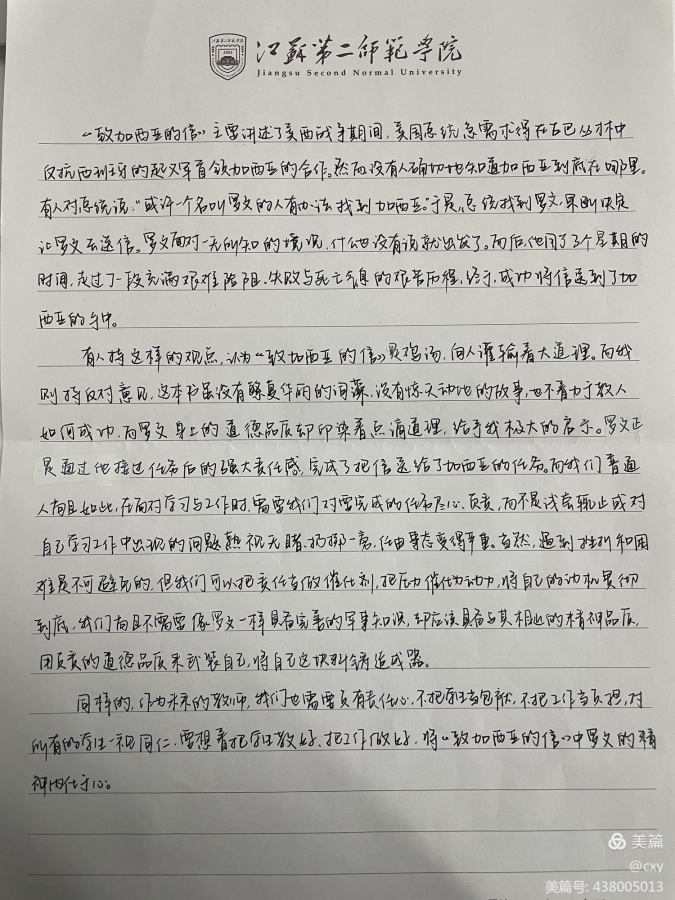 江苏第二师范学院
Jiangsu Second Normal University
“致加西亚的信”主要讲述了美西战争期间,美国总统急需求得在古巴丛林中
反抗西班牙的起义军首领加西亚的合作。然而没有人确切地知道加西亚到底在哪里。
有人对总统说:“或许一个名叫罗文的人有办法找到加西亚。”于是,总统找到罗文,果断决定
让罗文去送信。罗文面对一无所知的境况,什么也没有说就出发了。而后,他用了3个星期的
时间,走过了一段充满艰难险阻、失败与死亡气息的艰苦历程,终于,成功将信送到了加
西亚的手中。
有人持这样的观点,认为“致加西亚的信”是鸡汤,向人灌输着大道理。而我
则持反对意见,这本书虽没有繁复华丽的词藻,没有惊天动地的故事,也不着力于教人
如何成功,而罗文身上的道德品质却印染着点滴道理,给予我极大的启示。罗文正
是通过他接过任务后的强大责任感,完成了把信送给了加西亚的任务。而我们普通
人尚且如此,在面对学习与工作时,需要我们对要完成的任务尽心、负责,而不是浅尝辄止或对
自己学习工作中出现的问题熟视无睹、扔掷一旁,任由事态变得严重。当然,遇到挫折和困
难是不可避免的,但我们可以把责任当做催化剂,把压力催化动力,将自己的动机贯彻
到底,我们尚且不需要像罗文一样具有完善的军事知识,却应该具备与其相近的精神品质,
用负责的道德品质来武装自己,将自己这块料铸造成器。
同样的,作为未来的教师,我们也需要负有责任心,不把学生当包袱,不把工作当负担,对
所有的学生一视同仁,要想着把学生教好、把工作做好,将“致加西亚的信”中罗文的精
神内化于心。
美篇
@cxy
美篇号: 438005013